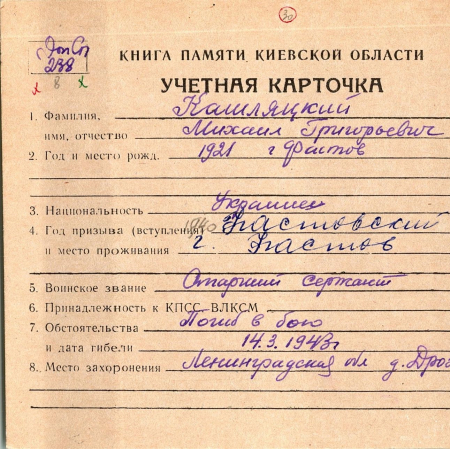 30
г. Доп Сп
238
х в х
КНИГА ПАМЯТИ КИЕВСКОЙ ОБЛАСТИ
УЧЕТНАЯ КАРТОЧКА
1. Фамилия, Кашляцкий
имя, отчество Михаил Григорьевич
2. Год и место рожд. 1921 г Фастов
3. Национальность Украинец
4. Год призыва (вступления) 1940 Фастовский
и место проживания г. Фастов
5. Воинское звание Старший сержант
6. Принадлежность к КПСС, ВЛКСМ
7. Обстоятельства Погиб в бою
и дата гибели 14.3.1943г
8. Место захоронения Ленинградская обл д.